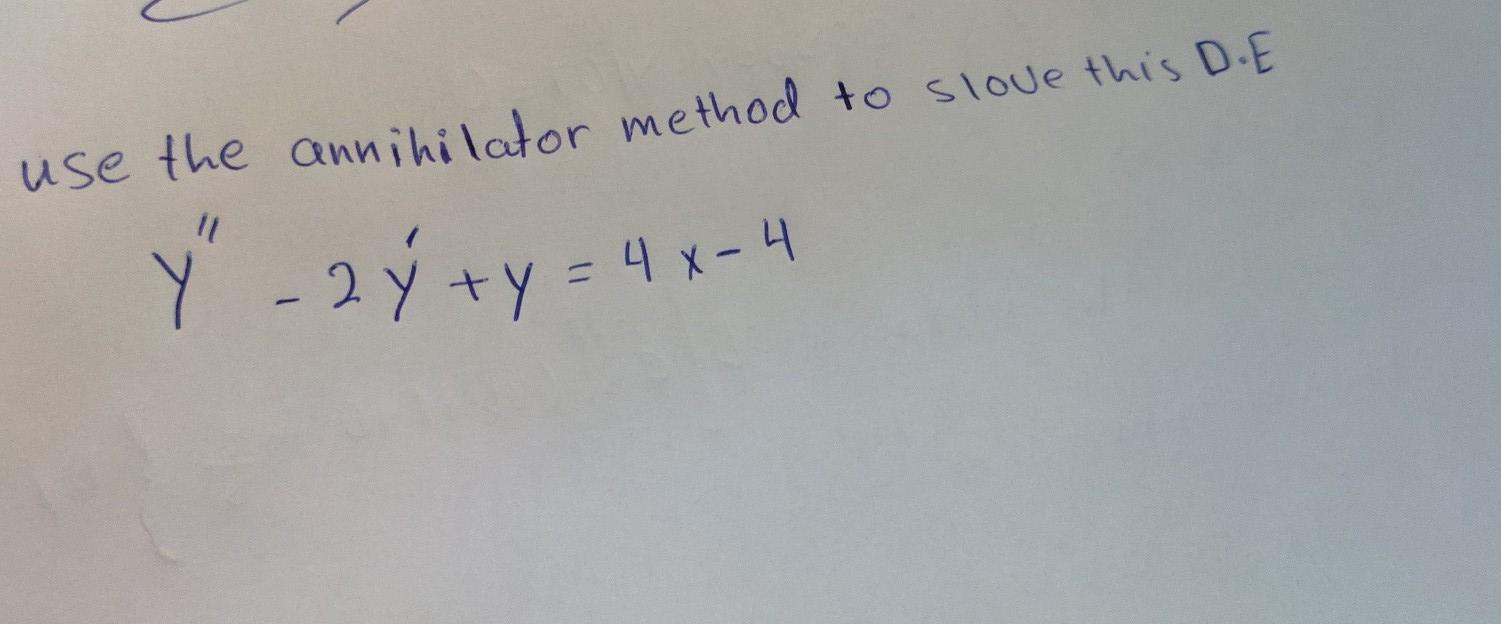 use the annihilator method to slove this D.E
y" - 2y' + y = 4x - 4